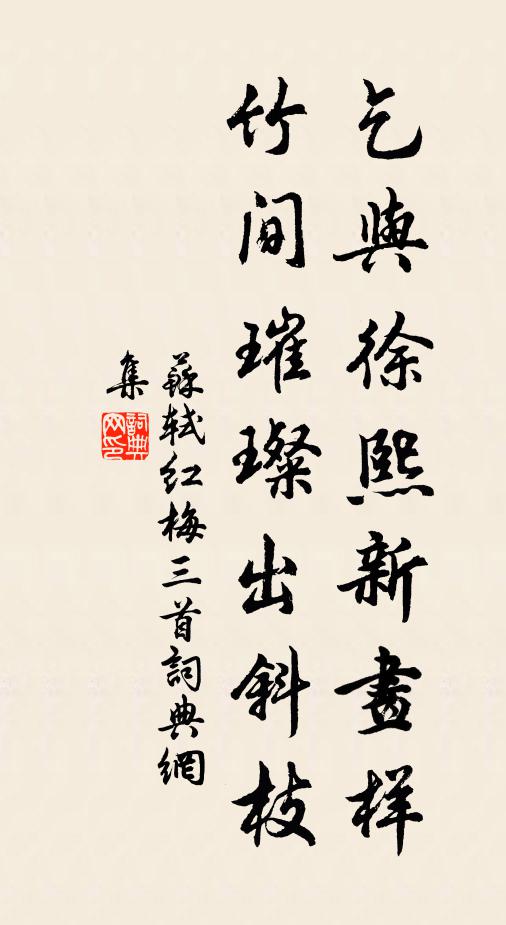 乞與徐熙新畫樣
竹間璀璨出斜枝
蘇軾紅梅三首詞典網
集
詞典網印